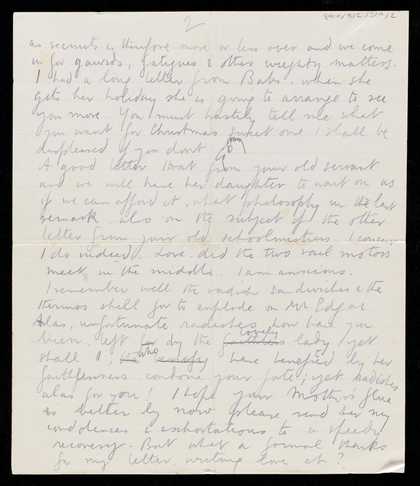 2
as recruits is therefore more or less over and we come
in for gaurds, fatigues & other weighty matters.
I had a long letter from Babs. when she
gets her holiday she is going to arrange to see
you more. You must hastily tell me what
you want for Christmas sweet one I shall be
displeased if you dont
A good letter that from your old servant
and we will have her daughter to wait on us
if we can afford it, what philosophy in the last
remark. Also on the subject of the other
letter from your old schoolmistress. I
I do indeed. Love. did the two rail motors
meet in the middle. I am anxious.
I remember well the radish sandwiches & the
thermos shell for to explode on Mr Edgar
Alas, unfortunate radishes, how have you
been left by the lovely lady, yet
shall who have benefited by her
faithfulness condone your fate; yet radishes
alas for you! I hope your Mothers flue
is better by now please send her my
condolences & exhortations to a speedy
recovery. But what a formal thanks
for my letter writing love eh?